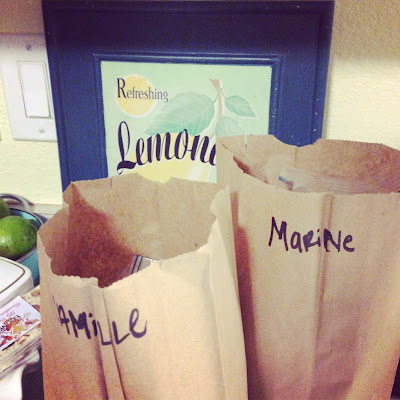 Refreshing
Lemon
Marine
AMille